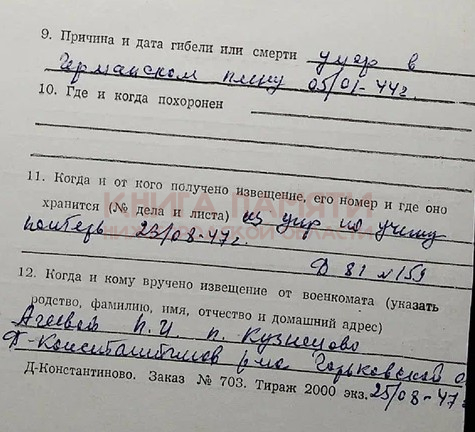 9. Причина и дата гибели или смерти умер в
Германском плену 05/01-44г.
10. Где и когда похоронен
11. Когда и от кого получено извещение, его номер и где оно
КНИГА ПАМЯТИ
хранится (№ дела и листа) из упр по учету
НИЖЕГОРОДСКОЙ ОБЛАСТИ
потерь 23/08-47г.
Д 81 № 159
12. Когда и кому вручено извещение от военкомата (указать
родство, фамилию, имя, отчество и домашний адрес)
Агеевой П.И п. Кузнецово
Д-Константинов р-на Горьковской о
Д-Константиново. Заказ № 703. Тираж 2000 экз. 25/08-47г